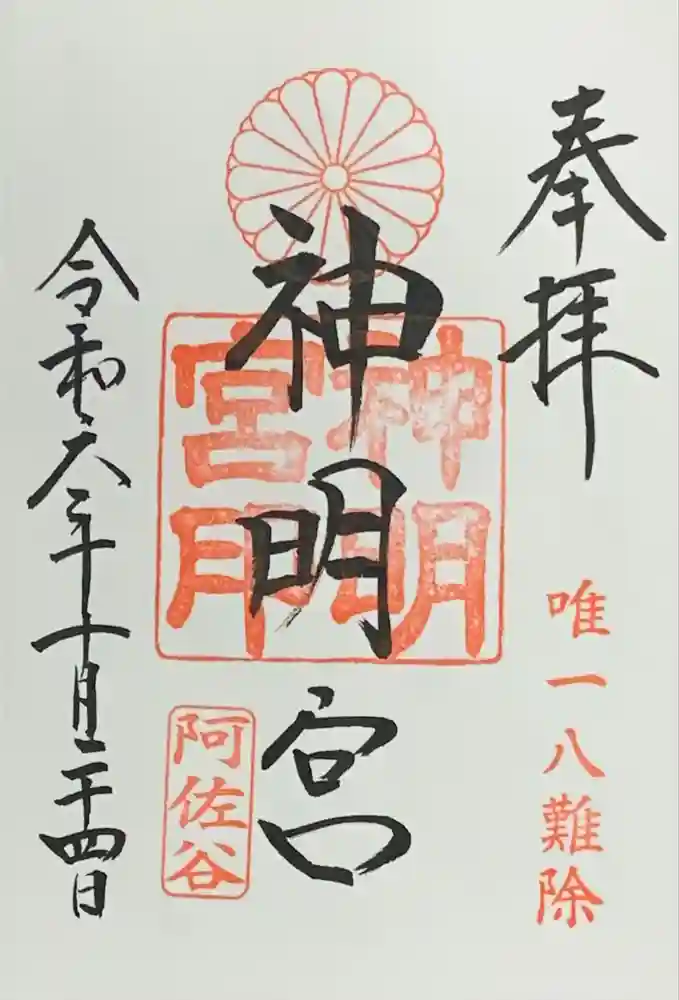 奉拝
唯一八難除
神明宮
神明宮印
阿佐谷
令和六年十月二十四日